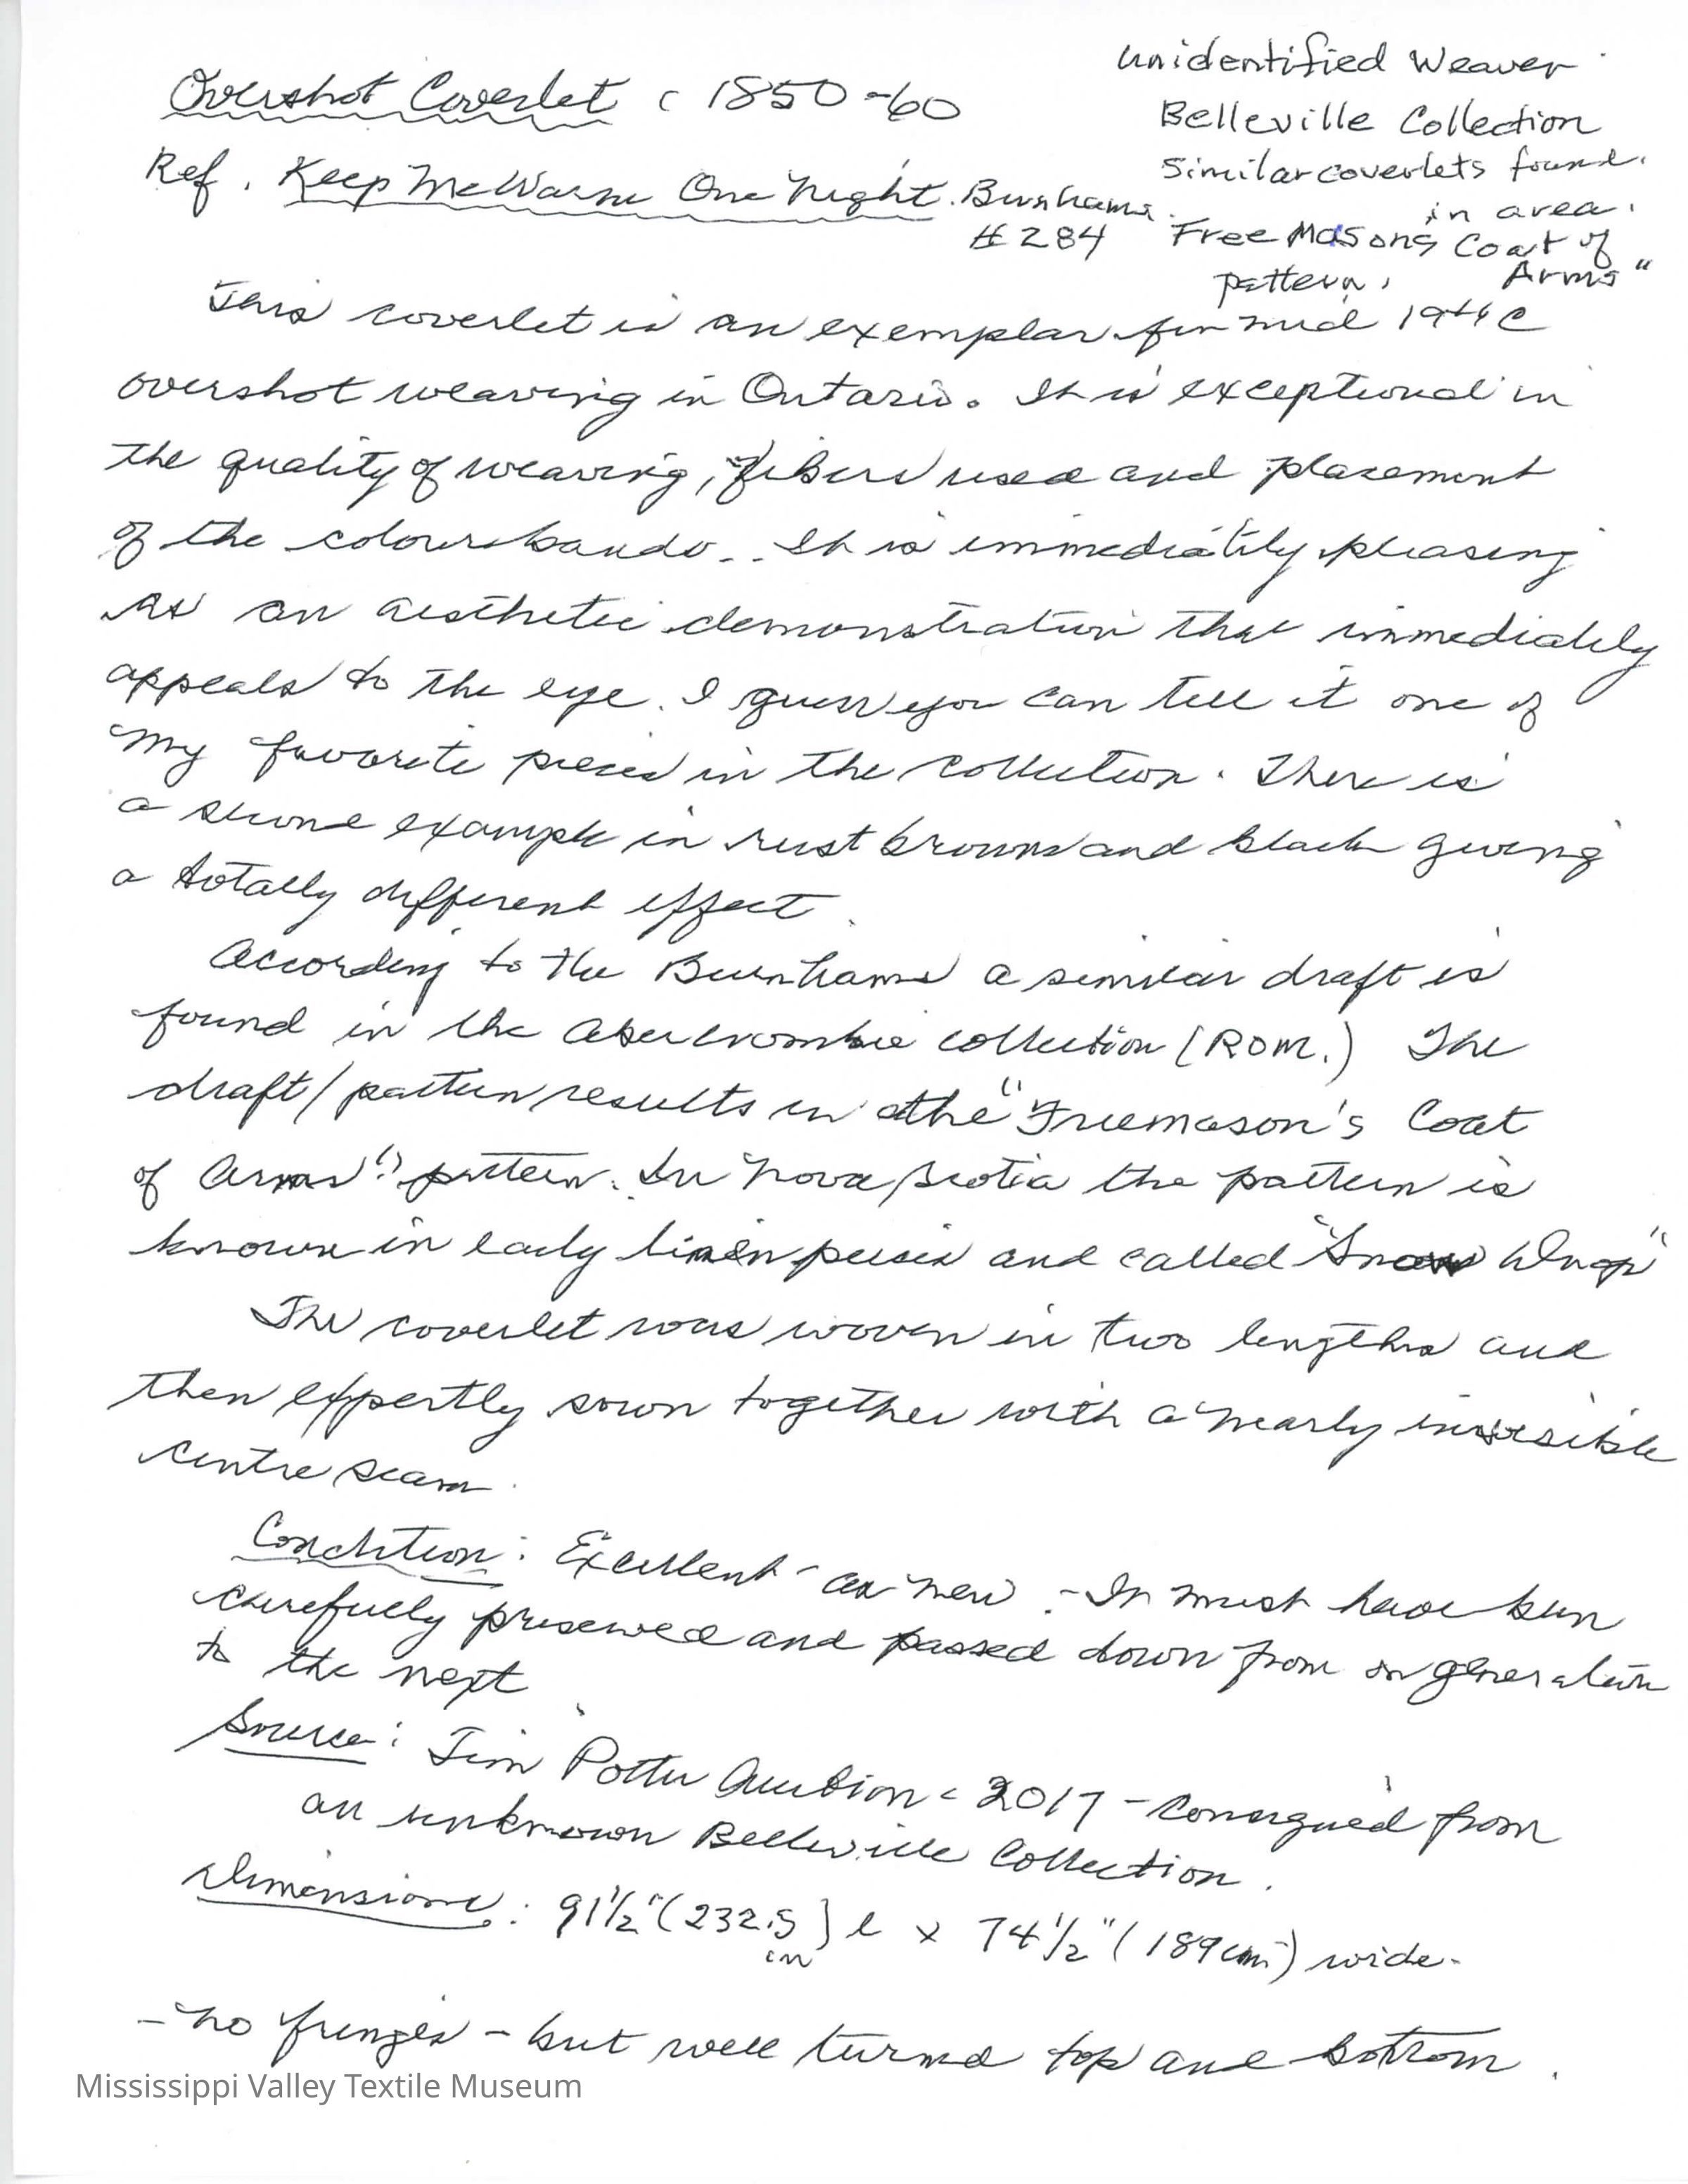 Overshot Coverlet c 1850-60
Ref. Keep Me Warm One Night. Burnhams
#284
Unidentified Weaver
Belleville Collection
Similar coverlets found
in area.
Free Masons Coat of
Arms"
pattern.
This coverlet is an exemplar for mid 19th C
overshot weaving in Ontario. It is exceptional in
the quality of weaving, fibers used and placement
of the colour bands.. It is immediatily pleasing
as an aesthetic demonstration that immediately
appeals to the eye. I guess you can tell it one of
my favorite pieces in the collection. There is
a second example in rust brown and black giving
a totally different effect.
According to the Burnhams a similar draft is
found in the Abercrombie collection (ROM.) The
draft/pattern results in the "Freemason's Coat
of Arms" pattern. In Nova Scotia the pattern is
known in early linen pieces and called "Snow Drop"
The coverlet was woven in two lengths and
then expertly sown together with a nearly invisible
centre seam.
Condition: Excellent - as new. - It must have been
carefully preserved and passed down from on generation
to the next
Source: Jim Potter Auction - 2017 - Consigned from
an unknown Belleville Collection.
Dimensions: 91 1/2" (232.5 l x 74 1/2" (189cm) wide.
cm)
- no fringes - but well turned top and bottom.
Mississippi Valley Textile Museum